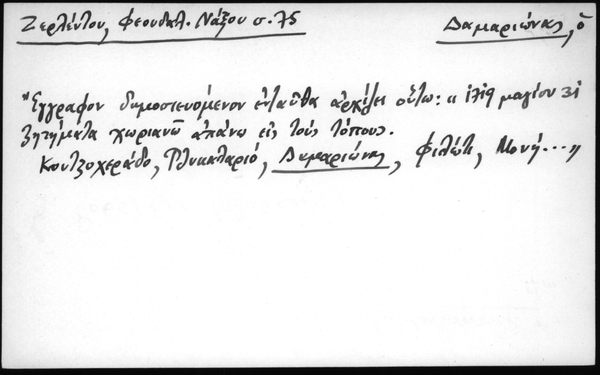 Ζερλέντου, Φεουδαλ. Νάξου σ. 75
Δαμαριώνας, ὁ
"Ἔγγραφον δημοσιευόμενον ἐνταῦθα ἀρχίζει οὕτω: « 1719 μαγίου 31
ζητήματα χωριανῶ ἀπάνω εἰς τοὺς τόπους.
Κουτζοχεράδο, Γλυκαταριό, Δαμαριώνας, Φιλώτι, Μονή...»